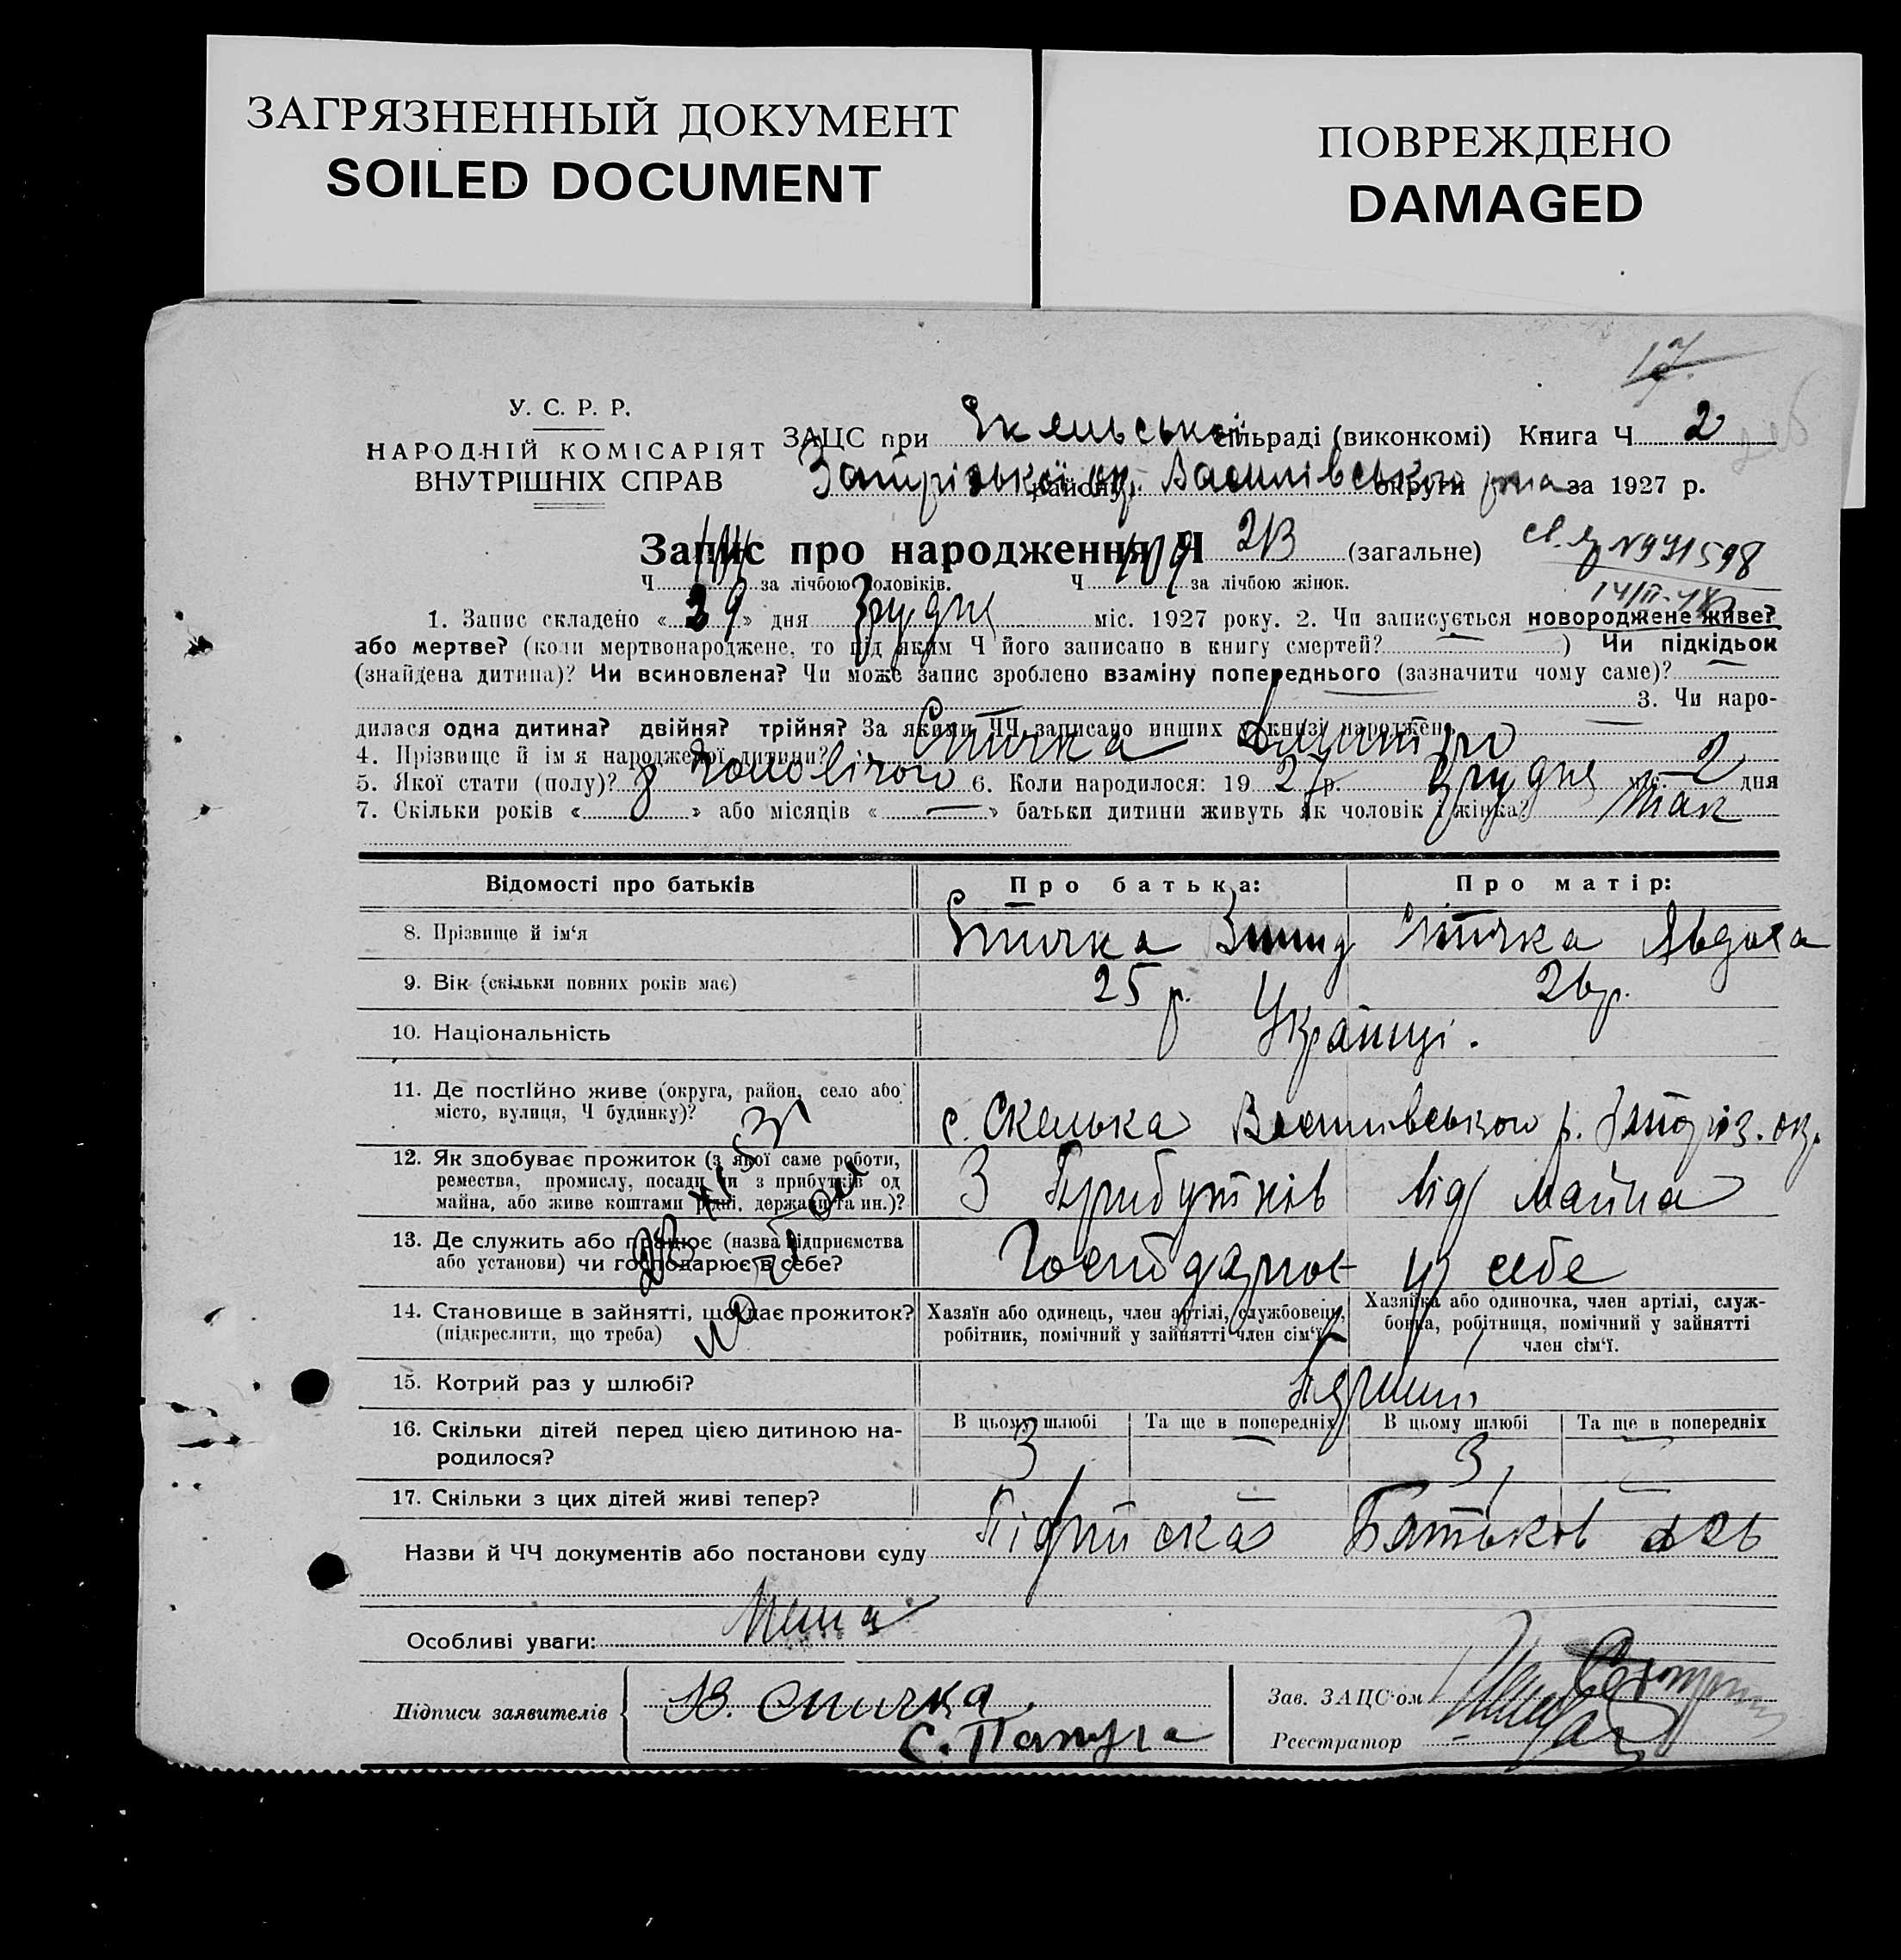 ЗАГРЯЗНЕННЫЙ ДОКУМЕНТ
SOILED DOCUMENT
ПОВРЕЖДЕНО
DAMAGED
17.
У. С. Р. Р.
НАРОДНІЙ КОМІСАРІЯТ
ВНУТРІШНІХ СПРАВ
ЗАЦС при сільраді (виконкомі) Книга Ч 2
району округи за 1927 р.
Запис про народження Ч 213 (загальне)
№ 971598
Ч за лічбою чоловіків. Ч 109 за лічбою жінок.
1. Запис складено « 29 » дня Грудня міс. 1927 року. 2. Чи записується новороджене живе?
або мертве? (коли мертвонароджене, то під яким Ч його записано в книгу смертей? — ) Чи підкідьок
(знайдена дитина)? Чи всиновлена? Чи може запис зроблено взаміну попереднього (зазначити чому саме)?
3. Чи наро-
дилася одна дитина? двійня? трійня? За якими ЧЧ записано инших у книзі народжень
4. Прізвище й ім'я народженої дитини? Стичка Дмитро
5. Якої стати (полу)? чоловічого 6. Коли народилося: 19 27 р. Грудня міс. 2 дня
7. Скільки років « 8 » або місяців « — » батьки дитини живуть як чоловік і жінка? так
Відомості про батьків Про батька: Про матір:
8. Прізвище й ім'я Стичка Стичка Явдоха
9. Вік (скільки повних років має) 25 р. 26 р.
10. Національність Українці.
11. Де постійно живе (округа, район, село або
місто, вулиця, Ч будинку)? с. Скелька Василівського р. Запоріз. окр.
12. Як здобуває прожиток (з якої саме роботи,
ремества, промислу, посади чи з прибутків од
майна, або живе коштами рідні, держави та ин.)? З Прибутків від майна
13. Де служить або працює (назва підприємства
або установи) чи господарює в себе? Господарює у себе
14. Становище в зайнятті, що дає прожиток?
(підкреслити, що треба)
Хазяїн або одинець, член артілі, службовець,
робітник, помічний у зайнятті член сім'ї.
Хазяйка або одиночка, член артілі, служ-
бовка, робітниця, помічний у зайнятті
член сім'ї.
15. Котрий раз у шлюбі? Перший
16. Скільки дітей перед цією дитиною на-
родилося?
В цьому шлюбі Та ще в попередніх В цьому шлюбі Та ще в попередніх
3 — 3 —
17. Скільки з цих дітей живі тепер?
Назви й ЧЧ документів або постанови суду Підписка Батьків
Особливі уваги: Нема
Підписи заявителів В. Стичка
С. Папуга
Зав. ЗАЦС'ом
Реєстратор